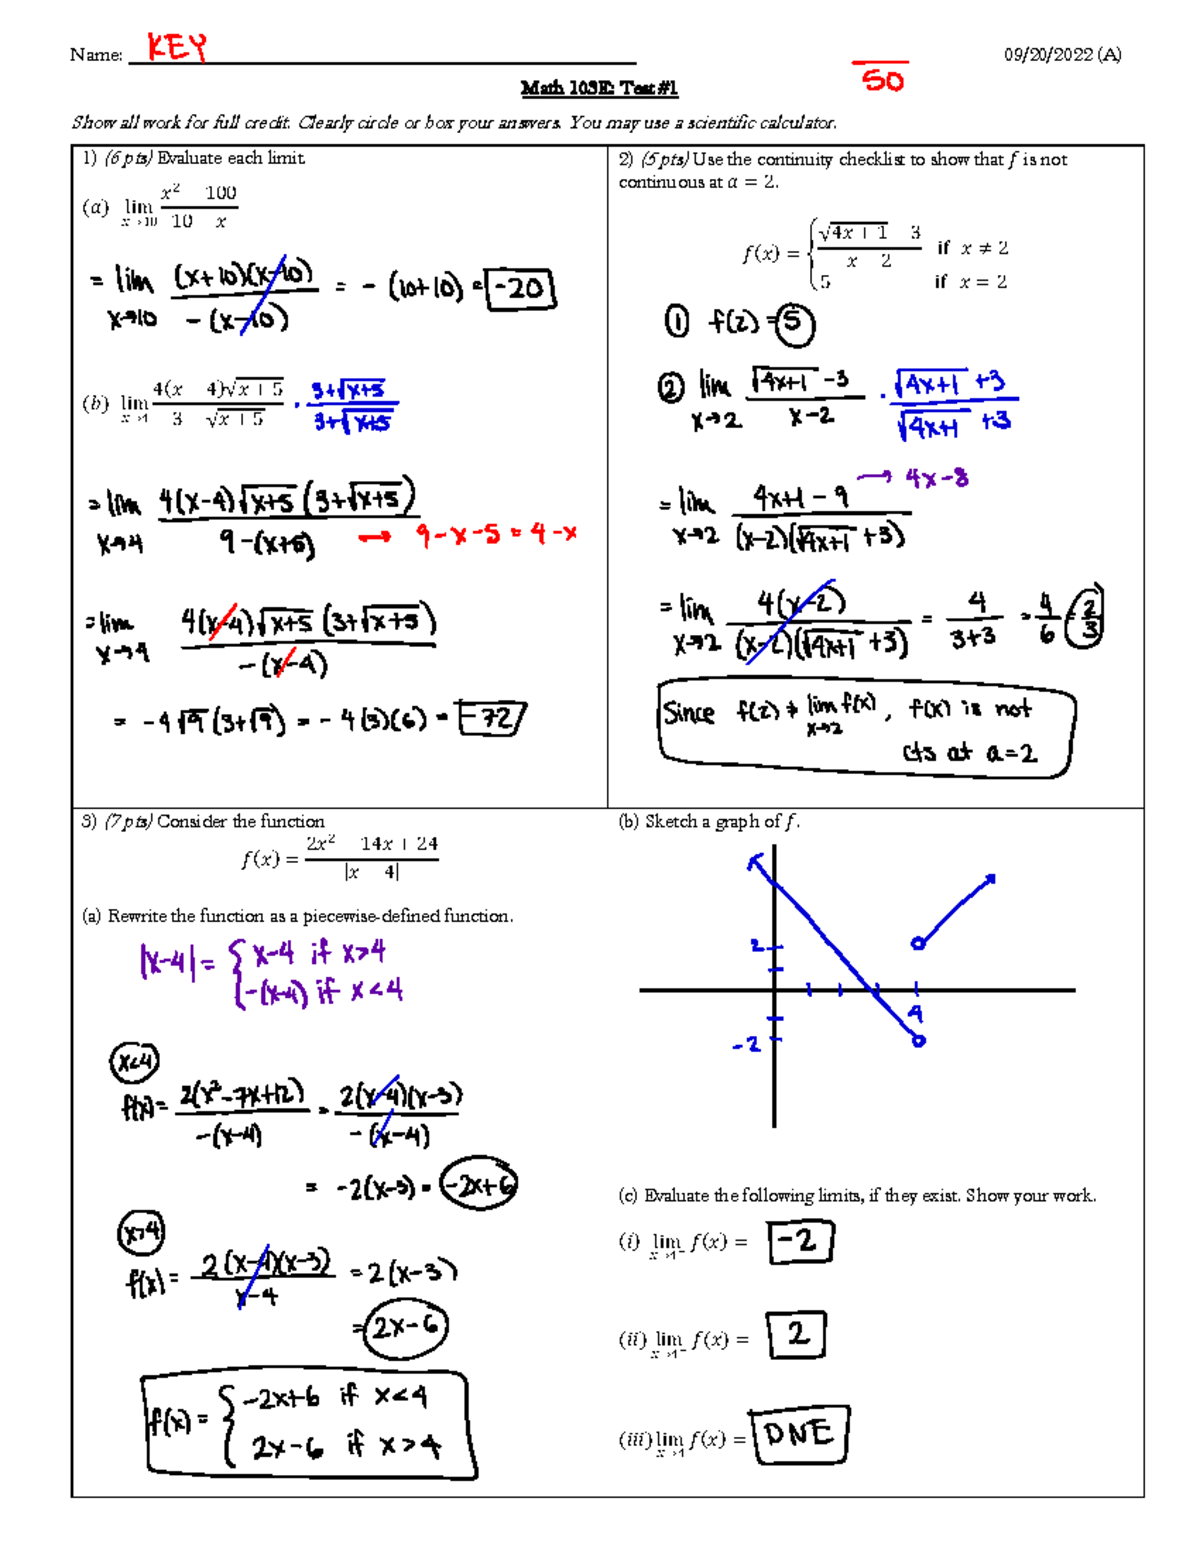 Name: KEY 09/20/2022 (A)
50
Math 103E: Test #1
Show all work for full credit. Clearly circle or box your answers. You may use a scientific calculator.
1) (6 pts) Evaluate each limit.
(a) lim x→10 (x² 100)/(10 x)
= lim x→10 (x+10)(x-10)/-(x-10) = -(10+10) = -20
(b) lim x→4 4(x 4)√(x+5)/(3 √(x+5)) · (3+√(x+5))/(3+√(x+5))
= lim x→4 4(x-4)√(x+5)(3+√(x+5))/(9-(x+5)) → 9-x-5 = 4-x
= lim x→4 4(x-4)√(x+5)(3+√(x+5))/-(x-4)
= -4√9(3+√9) = -4(3)(6) = -72
2) (5 pts) Use the continuity checklist to show that f is not
continuous at a = 2.
f(x) = { (√(4x+1) 3)/(x 2) if x ≠ 2
5 if x = 2
① f(2) = 5
② lim x→2 (√(4x+1) -3)/(x-2) · (√(4x+1) +3)/(√(4x+1) +3)
→ 4x-8
= lim x→2 (4x+1-9)/((x-2)(√(4x+1) +3))
= lim x→2 4(x-2)/((x-2)(√(4x+1) +3)) = 4/(3+3) = 4/6 = 2/3
Since f(2) ≠ lim x→2 f(x), f(x) is not
cts at a=2
3) (7 pts) Consider the function
f(x) = (2x² 14x + 24)/|x 4|
(a) Rewrite the function as a piecewise-defined function.
|x-4| = { x-4 if x>4
-(x-4) if x<4
x<4
f(x) = 2(x²-7x+12)/-(x-4) = 2(x-4)(x-3)/-(x-4)
= -2(x-3) = -2x+6
x>4
f(x) = 2(x-4)(x-3)/(x-4) = 2(x-3)
= 2x-6
f(x) = { -2x+6 if x<4
2x-6 if x>4
(b) Sketch a graph of f.
2
4
-2
(c) Evaluate the following limits, if they exist. Show your work.
(i) lim x→4⁻ f(x) = -2
(ii) lim f(x) = 2
(iii) lim x→4 f(x) = DNE